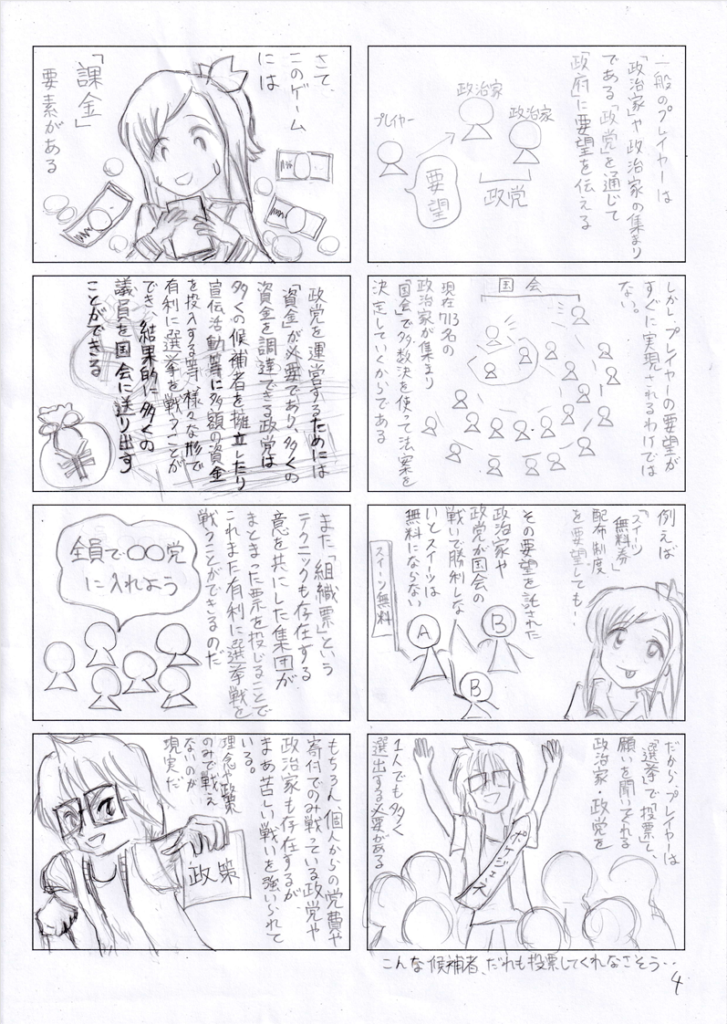 一般のプレイヤーは
「政治家」や政治家の集まり
である「政党」を通じて
「政府」に要望を伝える
政治家
政治家
プレイヤー
要望
政党
しかし、プレイヤーの要望が
すぐに実現されるわけでは
ない。
国会
現在713名の
政治家が集まり
「国会」で多数決を使って法案を
決定していくからである
例えば
「スイーツ
無料券」
配布制度
を要望しても・・
その要望を託された
政治家や
政党が国会の
戦いで勝利しな
いとスイーツは
無料にならない
スイーツ無料
A
B
B
だから、プレイヤーは
「選挙」で「投票」し、
願いを聞いてくれる
政治家・政党を
1人でも多く
選出する必要がある
ポサジェンズ
こんな候補者、だれも投票してくれなさそう・・
さて、
このゲーム
には
「課金」
要素がある
政党を運営するためには
「資金」が必要であり、多くの
資金を調達できる政党は
多くの候補者を擁立したり
宣伝活動等に多額の資金
を投入する等、様々な形で
有利に選挙を戦うことが
でき、結果的に多くの
議員を国会に送り出す
ことができる
また「組織票」という
テクニックも存在する
意を共にした集団が
まとまった票を投じることで
これまた有利に選挙戦を
戦うことができるのだ
全員で〇〇党
に入れよう
もちろん、個人からの党費や
寄付でのみ戦っている政党や
政治家も存在するが、
まあ苦しい戦いを強いられて
いる。
理念や政策
のみで戦え
ないのが
現実だ
政策
4